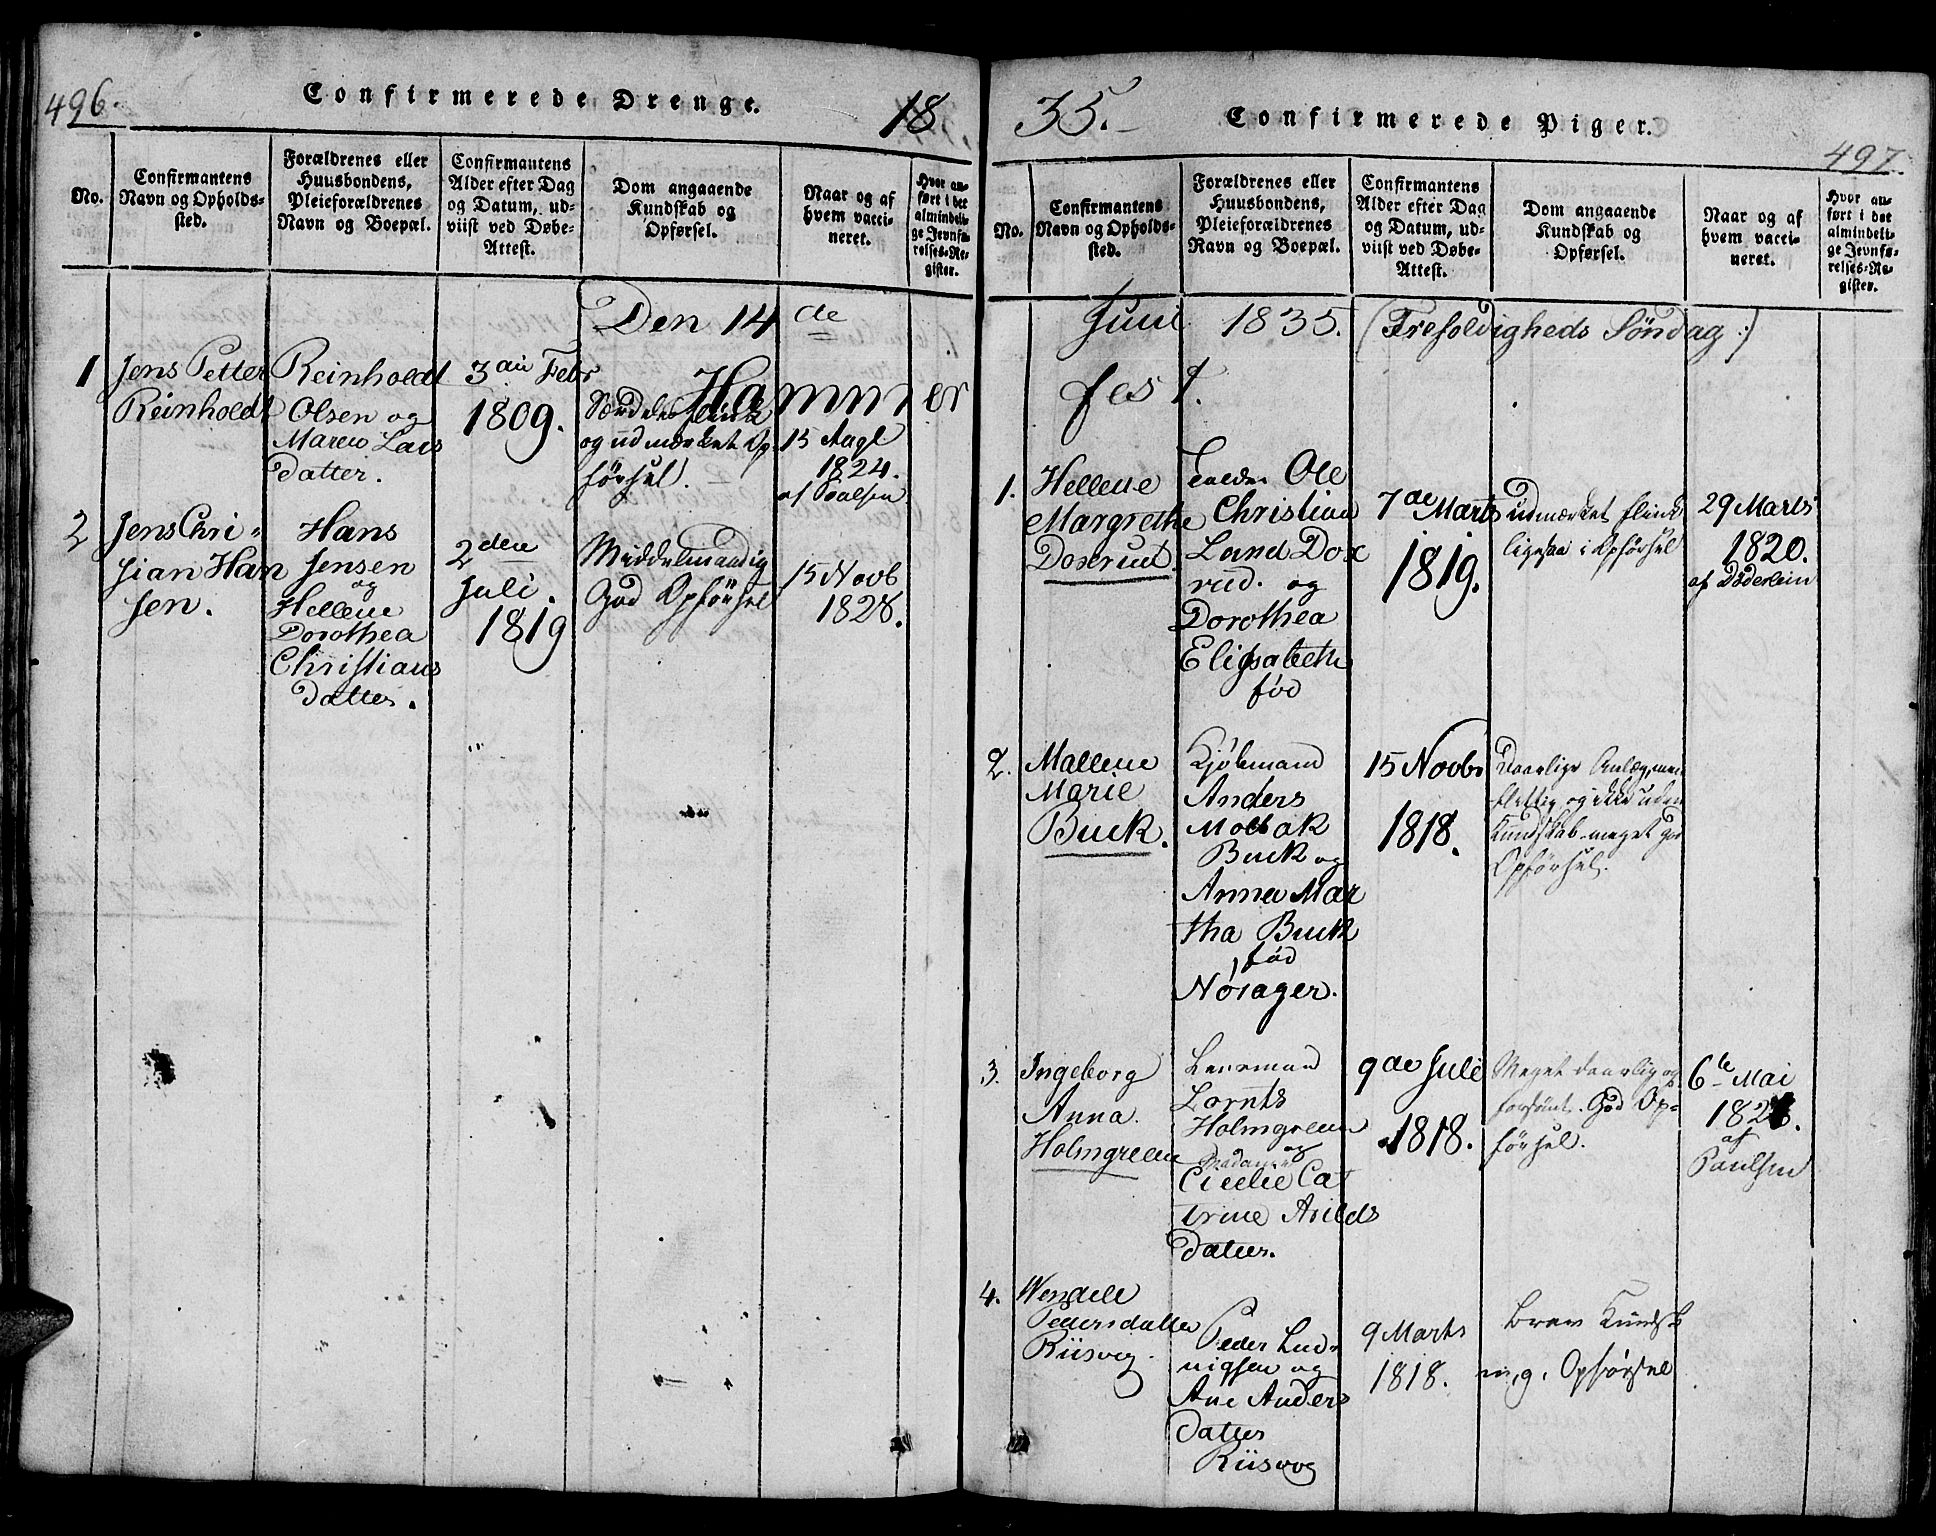 496.
Confirmerede Drenge.
18
No.
Confirmantens
Navn og Opholds-
sted.
Forældrenes eller
Huusbondens,
Pleieforældrenes
Navn og Boepæl.
Confirmantens
Alder efter Dag
og Datum, ud-
viist ved Døbe-
Attest.
Dom angaaende
Kundskab og
Opførsel.
Naar og af
hvem vacci-
neret.
Hvor an-
ført i det
almindeli-
ge Jevnfø-
relses-Re-
gister.
Den 14 de
Hammer
1
Jens Petter
Reinholdt
Reinholdt
Olsen og
Maren Lars
Datter.
Febr
1809.
og udmærket Op
førsel.
15 Aug
1824.
af Poulsen
2
Jens Chri-
stian Han
sen.
Hans
Jensen
og
Hellene
Dorothea
Christians
Datter.
2 den
Juli.
1819
Middelmaadig
God Opførsel
15 Novb
1828.
35.
Confirmerede Piger.
497.
No.
Confirmantens
Navn og Opholds-
sted.
Forældrenes eller
Huusbondens,
Pleieforældrenes
Navn og Boepæl.
Confirmantens
Alder efter Dag
og Datum, ud-
viist ved Døbe-
Attest.
Dom angaaende
Kundskab og
Opførsel.
Naar og af
hvem vacci-
neret.
Hvor an-
ført i det
almindeli-
ge Jevnfø-
relses-Re-
gister.
Juni 1835. (Trefoldigheds Søndag:)
fest.
1.
Hellene
Margrethe
Doxrud.
Ole
Christian
Lund Dox
rud. og
Dorothea
Elisabeth
fød
7 de Marts
1819.
udmærket flink
ligesaa i Opførsel
29 Marts
1820.
af Døderlein
2.
Mallene
Marie
Buck.
Kjøbmand
Anders
Molbak
Buck og
Anna Mar
tha Buck
fød
Nörager.
15 Novbr
1818.
Daarlige Anlæg, men
flittig og ikke uden
Kundskab. meget god
Opførsel.
3.
Ingeborg
Anna
Holmgreen
Lensmand
Lornts
Holmgreen
og
Madame
Cicelie Ca
trine Arilds
Datter.
9 de Juli
1818.
Meget daarlig og
forsömt. God Op-
førsel.
6 te Mai
af
Paulsen
4.
Wendele
Pedersdatter
Riisvog
Peder Lud-
vigsen og
Ane Anders
Datter
Riisvog
9 Marts
1818.
Brav Kundsk
m. g. Opførsel